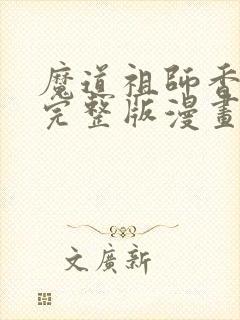 魔道祖師香
完整版漫畫
文廣新